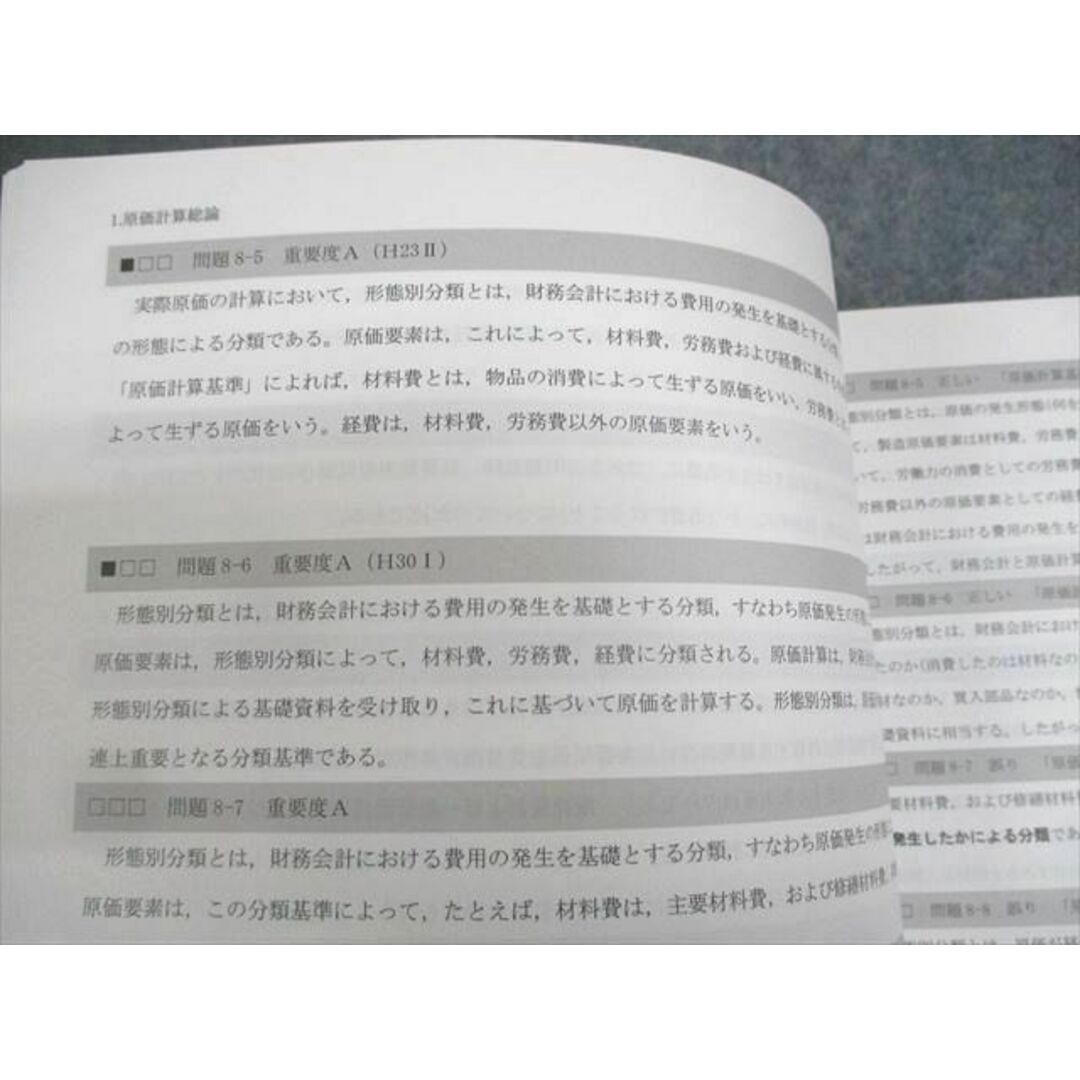 1.原価計算総論
■□□ 問題 8-5 重要度A (H23Ⅱ)
実際原価の計算において，形態別分類とは，財務会計における費用の発生を基礎とする分類，
の形態による分類である。原価要素は，これによって，材料費，労務費および経費に属する
「原価計算基準」によれば，材料費とは，物品の消費によって生ずる原価をいい，労務費とは
よって生ずる原価をいう。経費は，材料費，労務費以外の原価要素をいう。
■□□ 問題 8-6 重要度A (H30Ⅰ)
形態別分類とは，財務会計における費用の発生を基礎とする分類，すなわち原価発生の形態
原価要素は，形態別分類によって，材料費，労務費，経費に分類される。原価計算は，財務会
形態別分類による基礎資料を受け取り，これに基づいて原価を計算する。形態別分類は，
連上重要となる分類基準である。
□□□ 問題 8-7 重要度A
形態別分類とは，財務会計における費用の発生を基礎とする分類，すなわち原価発生の形態
原価要素は，この分類基準によって，たとえば，材料費は，主要材料費，および修繕材料費，
□ 問題 8-5 正しい 「原価計算基
態別分類とは，原価の発生形態
て，製造原価要素は材料費，労務費
いて，労働力の消費としての労務費
労務費以外の原価要素としての経
は財務会計における費用の発生を
したがって，財務会計と原価計算
□ 問題 8-6 正しい 「原価計
態別分類とは，財務会計におけ
たのか(消費したのは材料なの
材なのか，買入部品なのか，
礎資料に相当する。したがっ
□ 問題 8-7 誤り 「原価
要材料費，および修繕材料
発生したかによる分類であ
□ 問題 8-8 誤り 「原